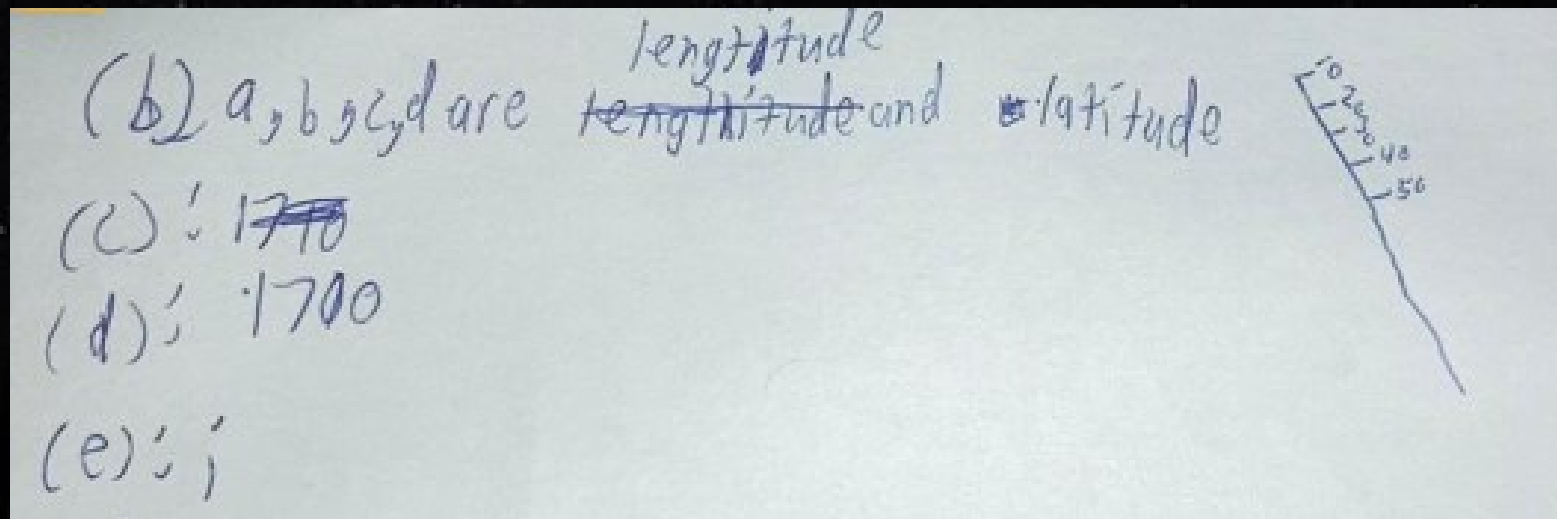 lengtitude
(b) a, b, c, d are lengthitude and latitude
(c): 1710
(d): 1700
(e): ;
10
20
30
40
50